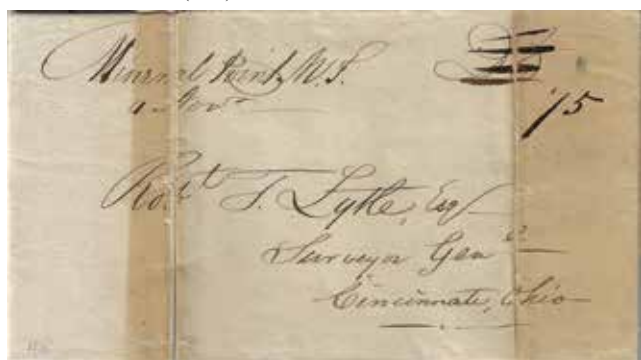 Mineral Point W.T.
Nov.
75
Robt. T. Lytle, Esq
Surveyor Genl
Cincinnati, Ohio